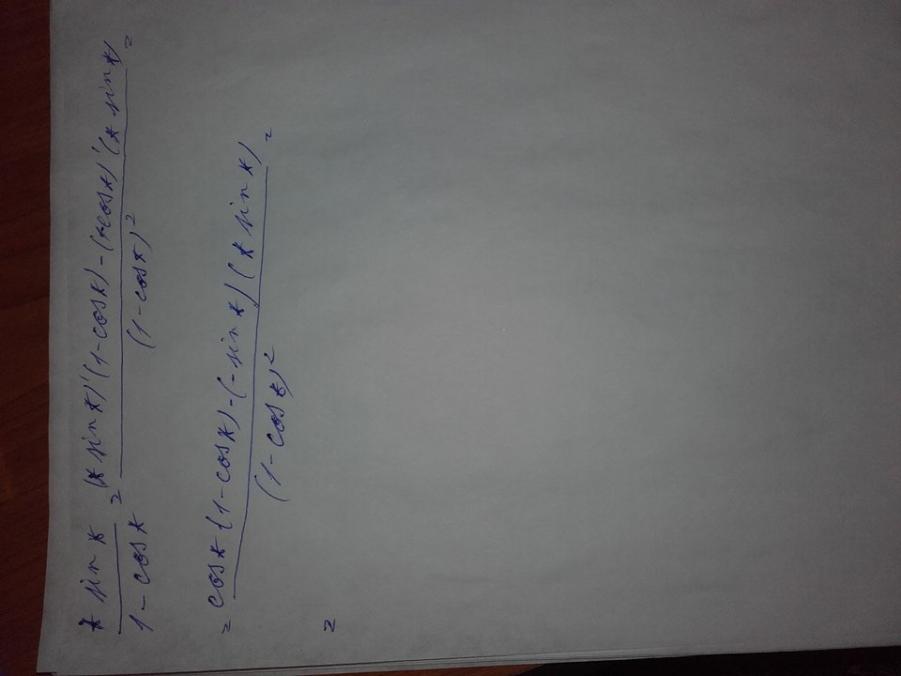 x sin x / 1 - cos x = (x sin x)' (1 - cos x) - (1-cos x)' (x sin x) / (1 - cos x)² =
= cos x (1 - cos x) - (- sin x) (x sin x) / (1 - cos x)² =
=